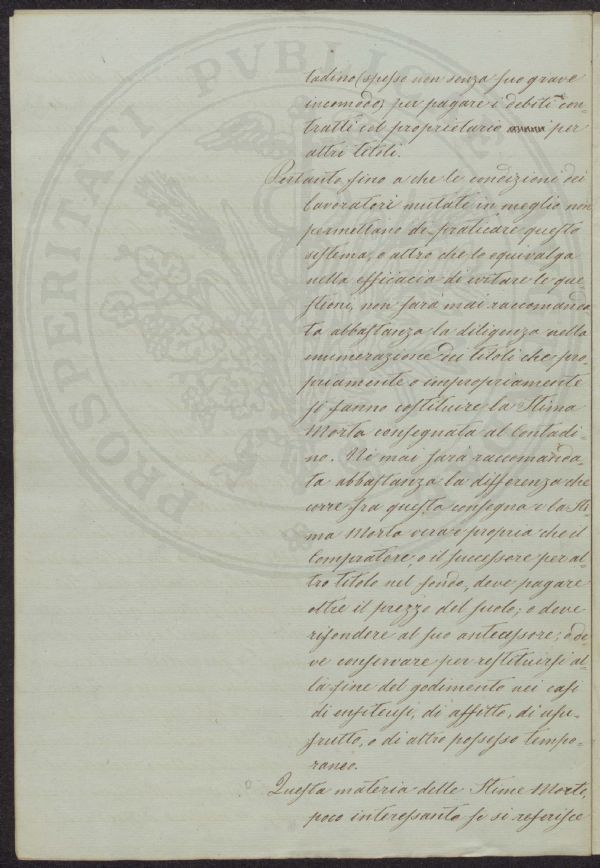 PROSPERITATI PVBLICAE
tadino (spesso non senza suo grave
incomodo) per pagare i debiti con-
tratti col proprietario per
altri titoli.
Pertanto fino a che le condizioni dei
lavoratori mutate in meglio non
permettano di praticare questo
sistema, o altro che lo equivalga
nella efficacia di evitare le que-
stioni, non sarà mai raccomanda
ta abbastanza la diligenza nella
numerazione dei titoli che pro
priamente o impropriamente
si fanno costituire la Stima
Morta consegnata al Contadi-
no. Nè mai sarà raccomanda-
ta abbastanza la differenza che
corre fra questa consegna e la Sti
ma Morta vera e propria che il
Compratore, o il successore per al
tro titolo nel fondo, deve pagare
oltre il prezzo del suolo; o deve
rifondere al suo antecessore; o de
ve conservare per restituirsi al-
la fine del godimento nei casi
di enfiteusi, di affitto, di usu-
frutto, o di altro possesso tempo-
raneo.
Questa materia delle Stime Morte,
poco interessante se si referisce